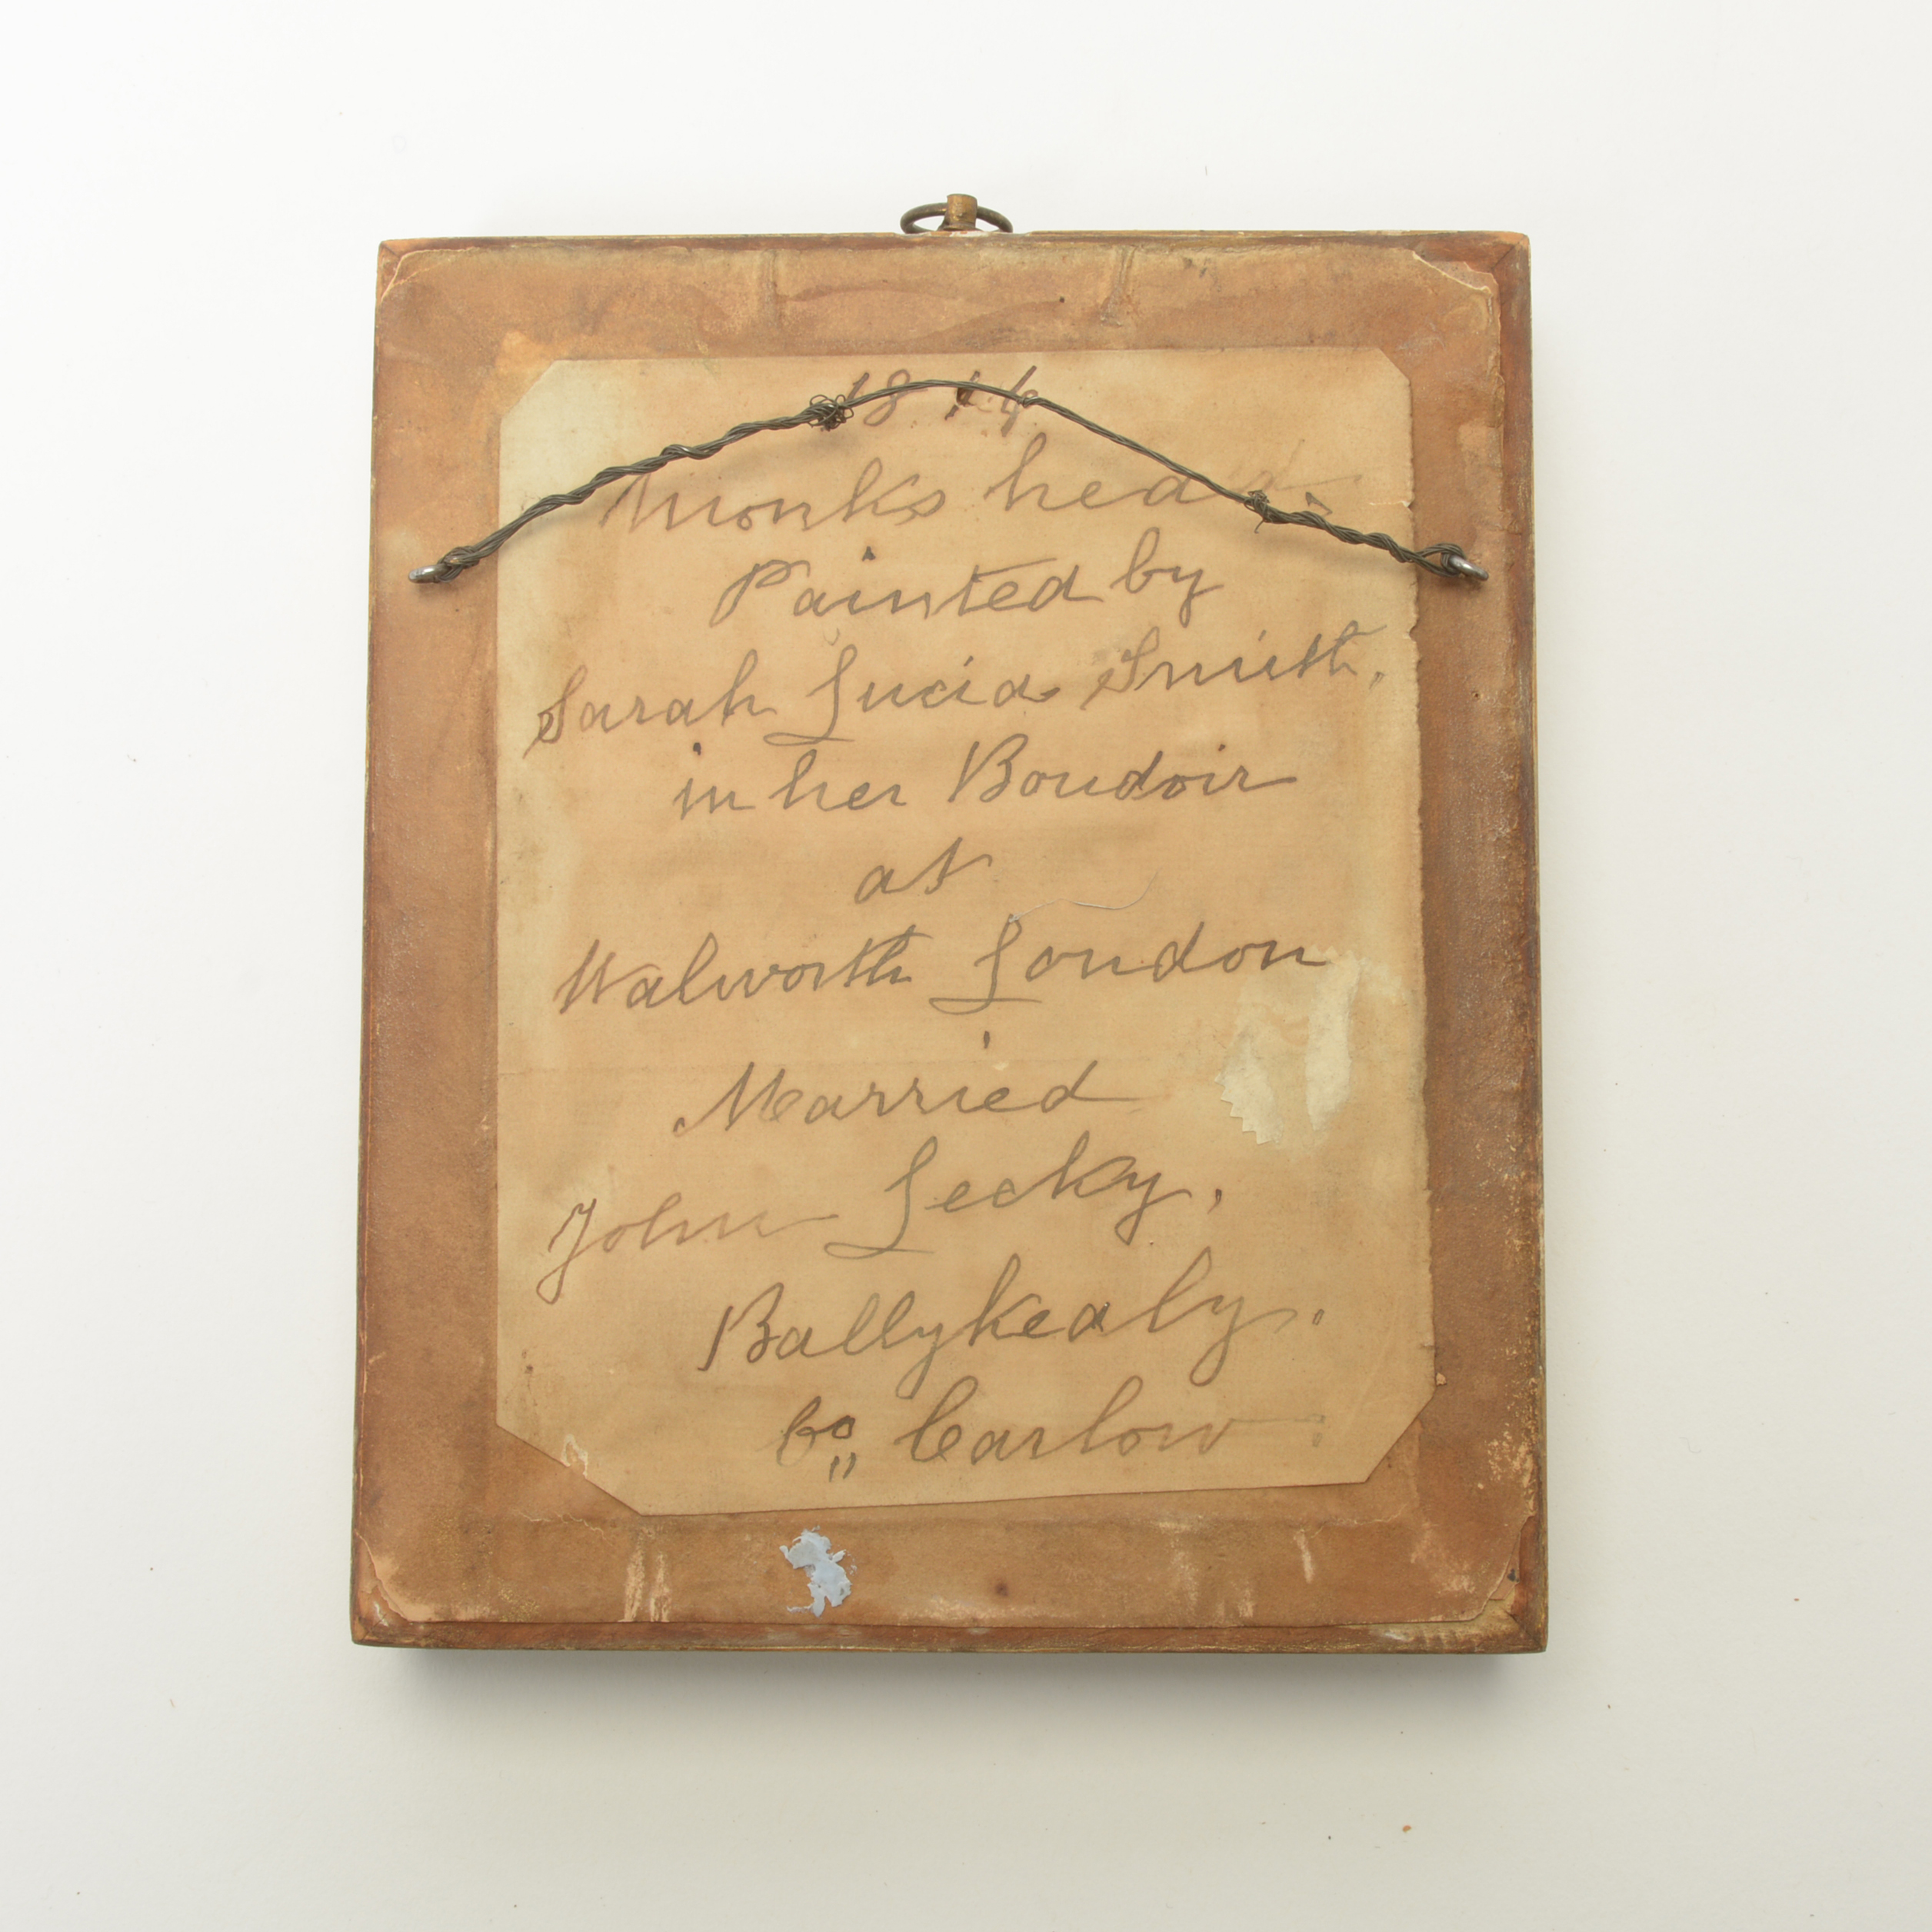 1814
Monks head.
Painted by
Sarah Lucia Smith.
in her Boudoir
at
Walworth London
Married
John Lecky,
Ballykealy.
Co,, Carlow.